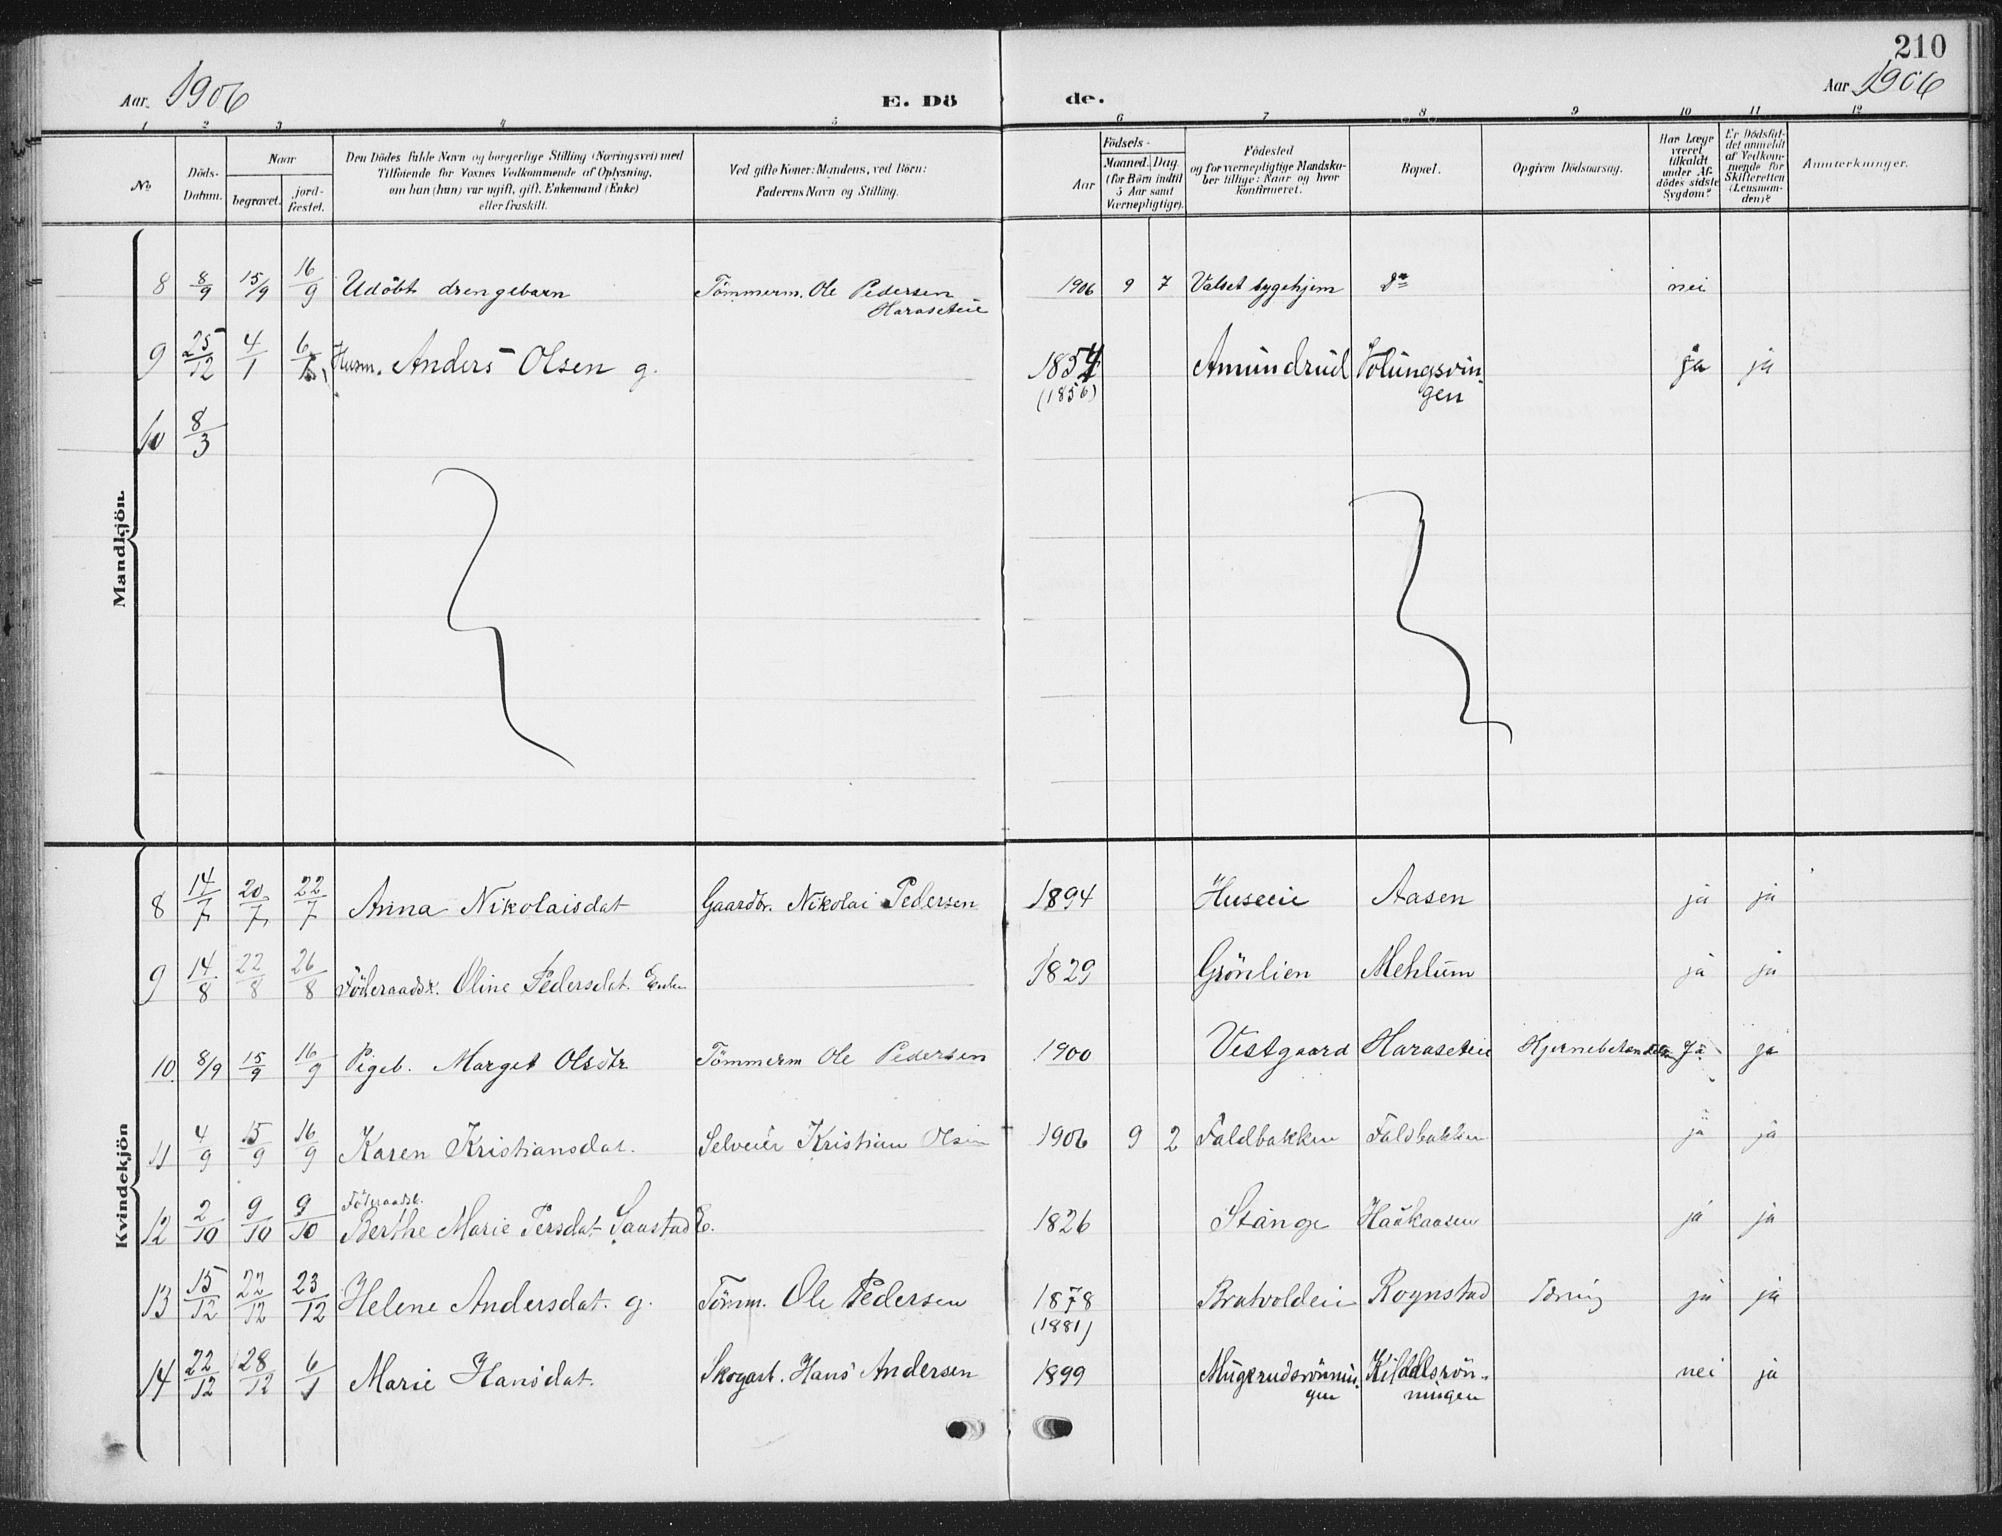 210
Aar. 1906 E. Dö de. Aar 1906
1 2 3 4 5 6 7 8 9 10 11 12
No
Döds-Datum.
Naar
begravet.
jord-fæstet.
Den Dödes fulde Navn og borgerlige Stilling (Næringsvei) med
Tilföiende for Voxnes Vedkommende af Oplysning,
om han (hun) var ugift, gift, Enkemand (Enke)
eller fraskilt.
Ved gifte Koner: Mandens, ved Börn:
Faderens Navn og Stilling.
Födsels-
Aar
Maaned. Dag.
(for Börn indtil
5 Aar samt
Værnepligtige).
Födested
og for værnepligtige Mandska-
ber tillige: Naar og hvor
konfirmeret.
Bopæl.
Opgiven Dödsaarsag.
Har Læge
været
tilkaldt
under Af-
dödes sidste
Sygdom?
Er Dödsfal-
det anmeldt
af Vedkom-
mende for
Skifteretten
(Lensman-
den)?
Anmerkninger.
Mandkjön.
8 8/9 15/9 16/9 Udöbt drengebarn Tömmerm. Ole Pedersen 1906 9 7 Valset sygehjem do nei
Haraseteie
9 25/12 4/1 6/1 Husm. Anders Olsen g. 1854 Amundrud Volungsvin- ja ja
(1856) gen
10 8/3
Kvindekjön
8 14/7 20/7 22/7 Anna Nikolaisdat Gaardbr. Nikolai Pedersen 1894 Huseeie Aasen ja ja
9 14/8 22/8 26/8 Föderaadsk. Oline Pedersdat. Enke 1829 Grönlien Mehlum ja ja
10. 8/9 15/9 16/9 Pigeb. Marget Olsdtr Tömmerm Ole Pedersen 1900 Vestgaard Haraseteie Hjernebetændelse Ja ja
11 4/9 15/9 16/9 Karen Kristiansdat. Selveier Kristian Olsen 1906 9 2 Faldbakken Faldbakken ja ja
Föderaadsk.
12 2/10 9/10 9/10 Berthe Marie Persdat Saastad E. 1826 Stange Haakaasen ja ja
13 15/12 22/12 23/12 Helene Andersdat. g. Tömm. Ole Pedersen 1878 Bratvoldeie Rognstad Tæring ja ja
(1881)
14 22/12 28/12 6/1 Marie Hansdat. Skogarb. Hans Andersen 1899 Mugerudsrönnin- Kildalsrön- nei ja
gen ningen